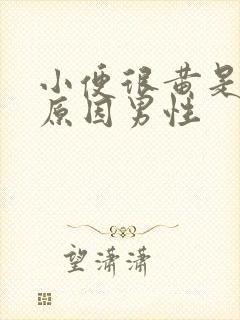 小便很黄是
原因男性
望潇潇